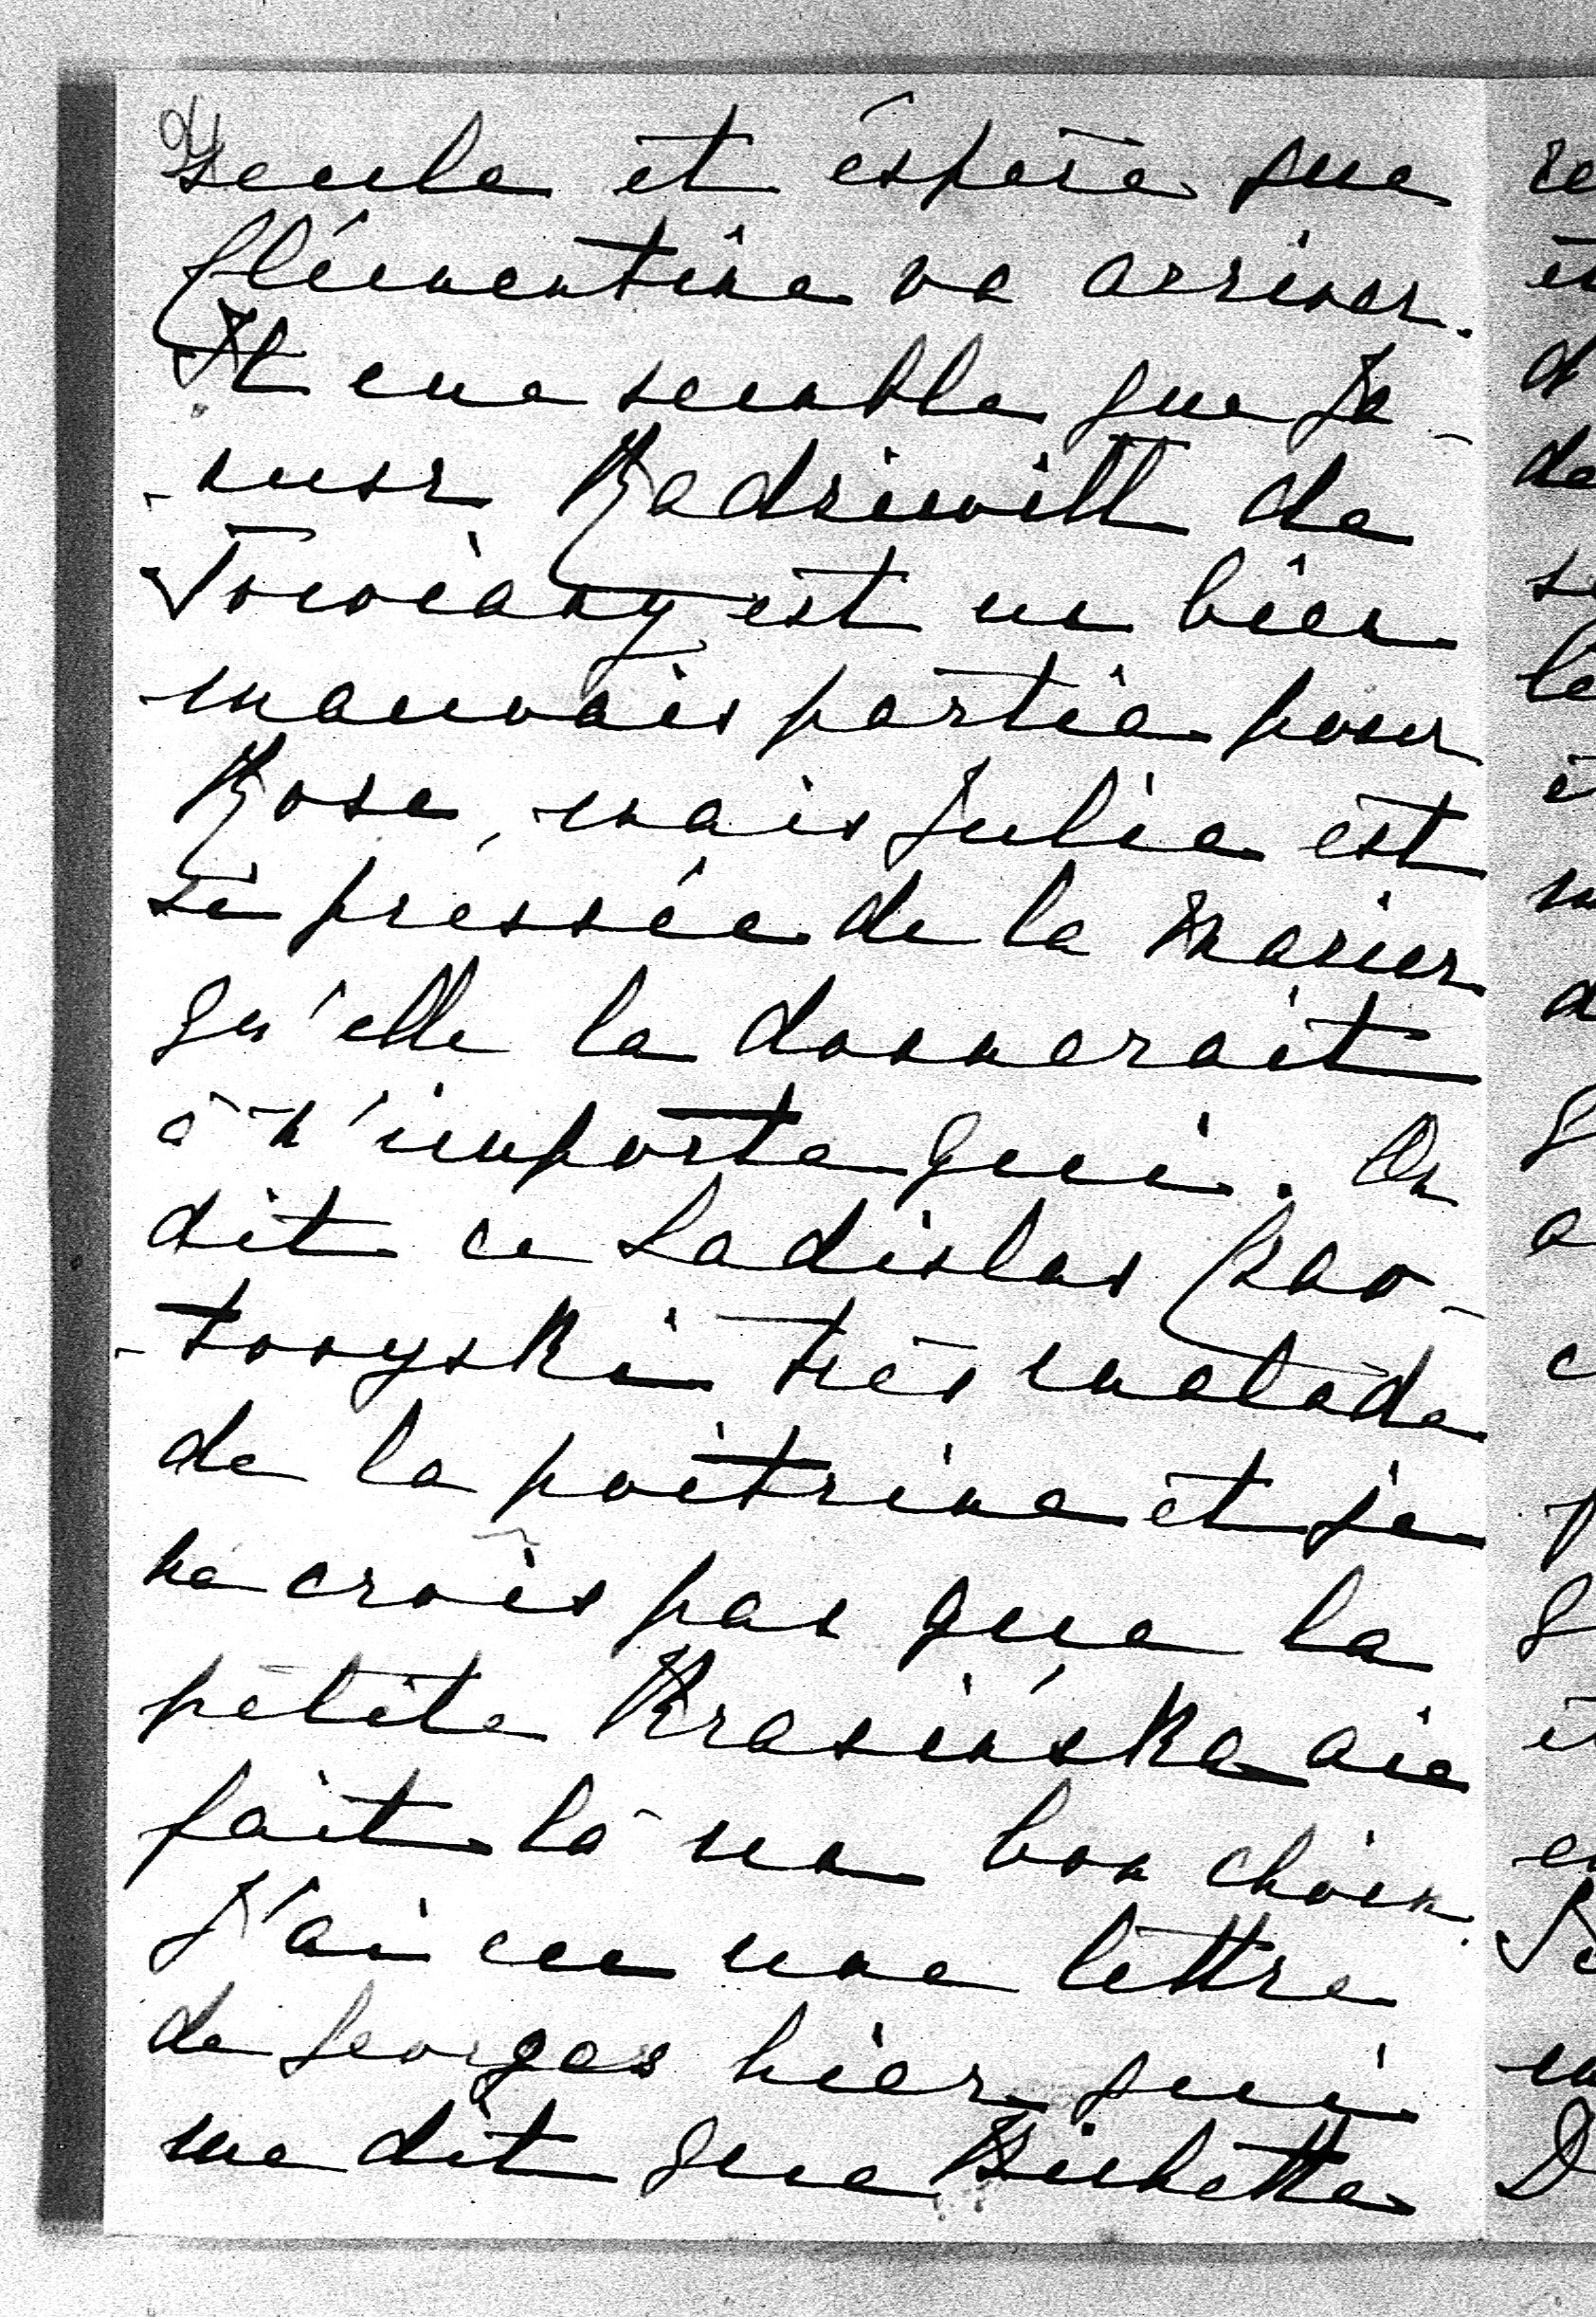 seule et espère que
Clémentine va arriver.
Il me semble que Ja-
-nusz Radziwill de
Towiany est un bien
mauvais partie pour
Rose, mais Julie est
si pressée de la marier
qu'elle la donnerait
à n'importe qui. On
dit ce Ladislas Czar-
-toryski très malade
de la poitrine et je
ne crois pas que la
petite Krasińska aie
fait là un bon choix.
J'ai eu une lettre
de Georges hier qui
me dit que Bichette